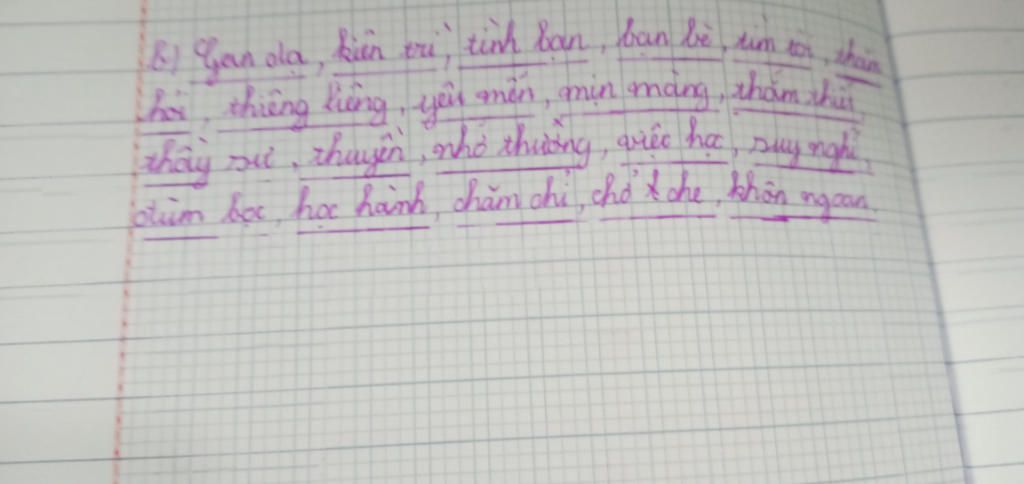 b) Gan dạ, kiên trì, tình bạn, bạn bè, tìm tòi, thăm
hỏi, thiêng liêng, yêu mến, mịn màng, thấm thía,
thầy cô, thuyền, nhớ thương, việc học, suy nghĩ,
đùm bọc, học hành, chăm chỉ, chở che, khôn ngoan.